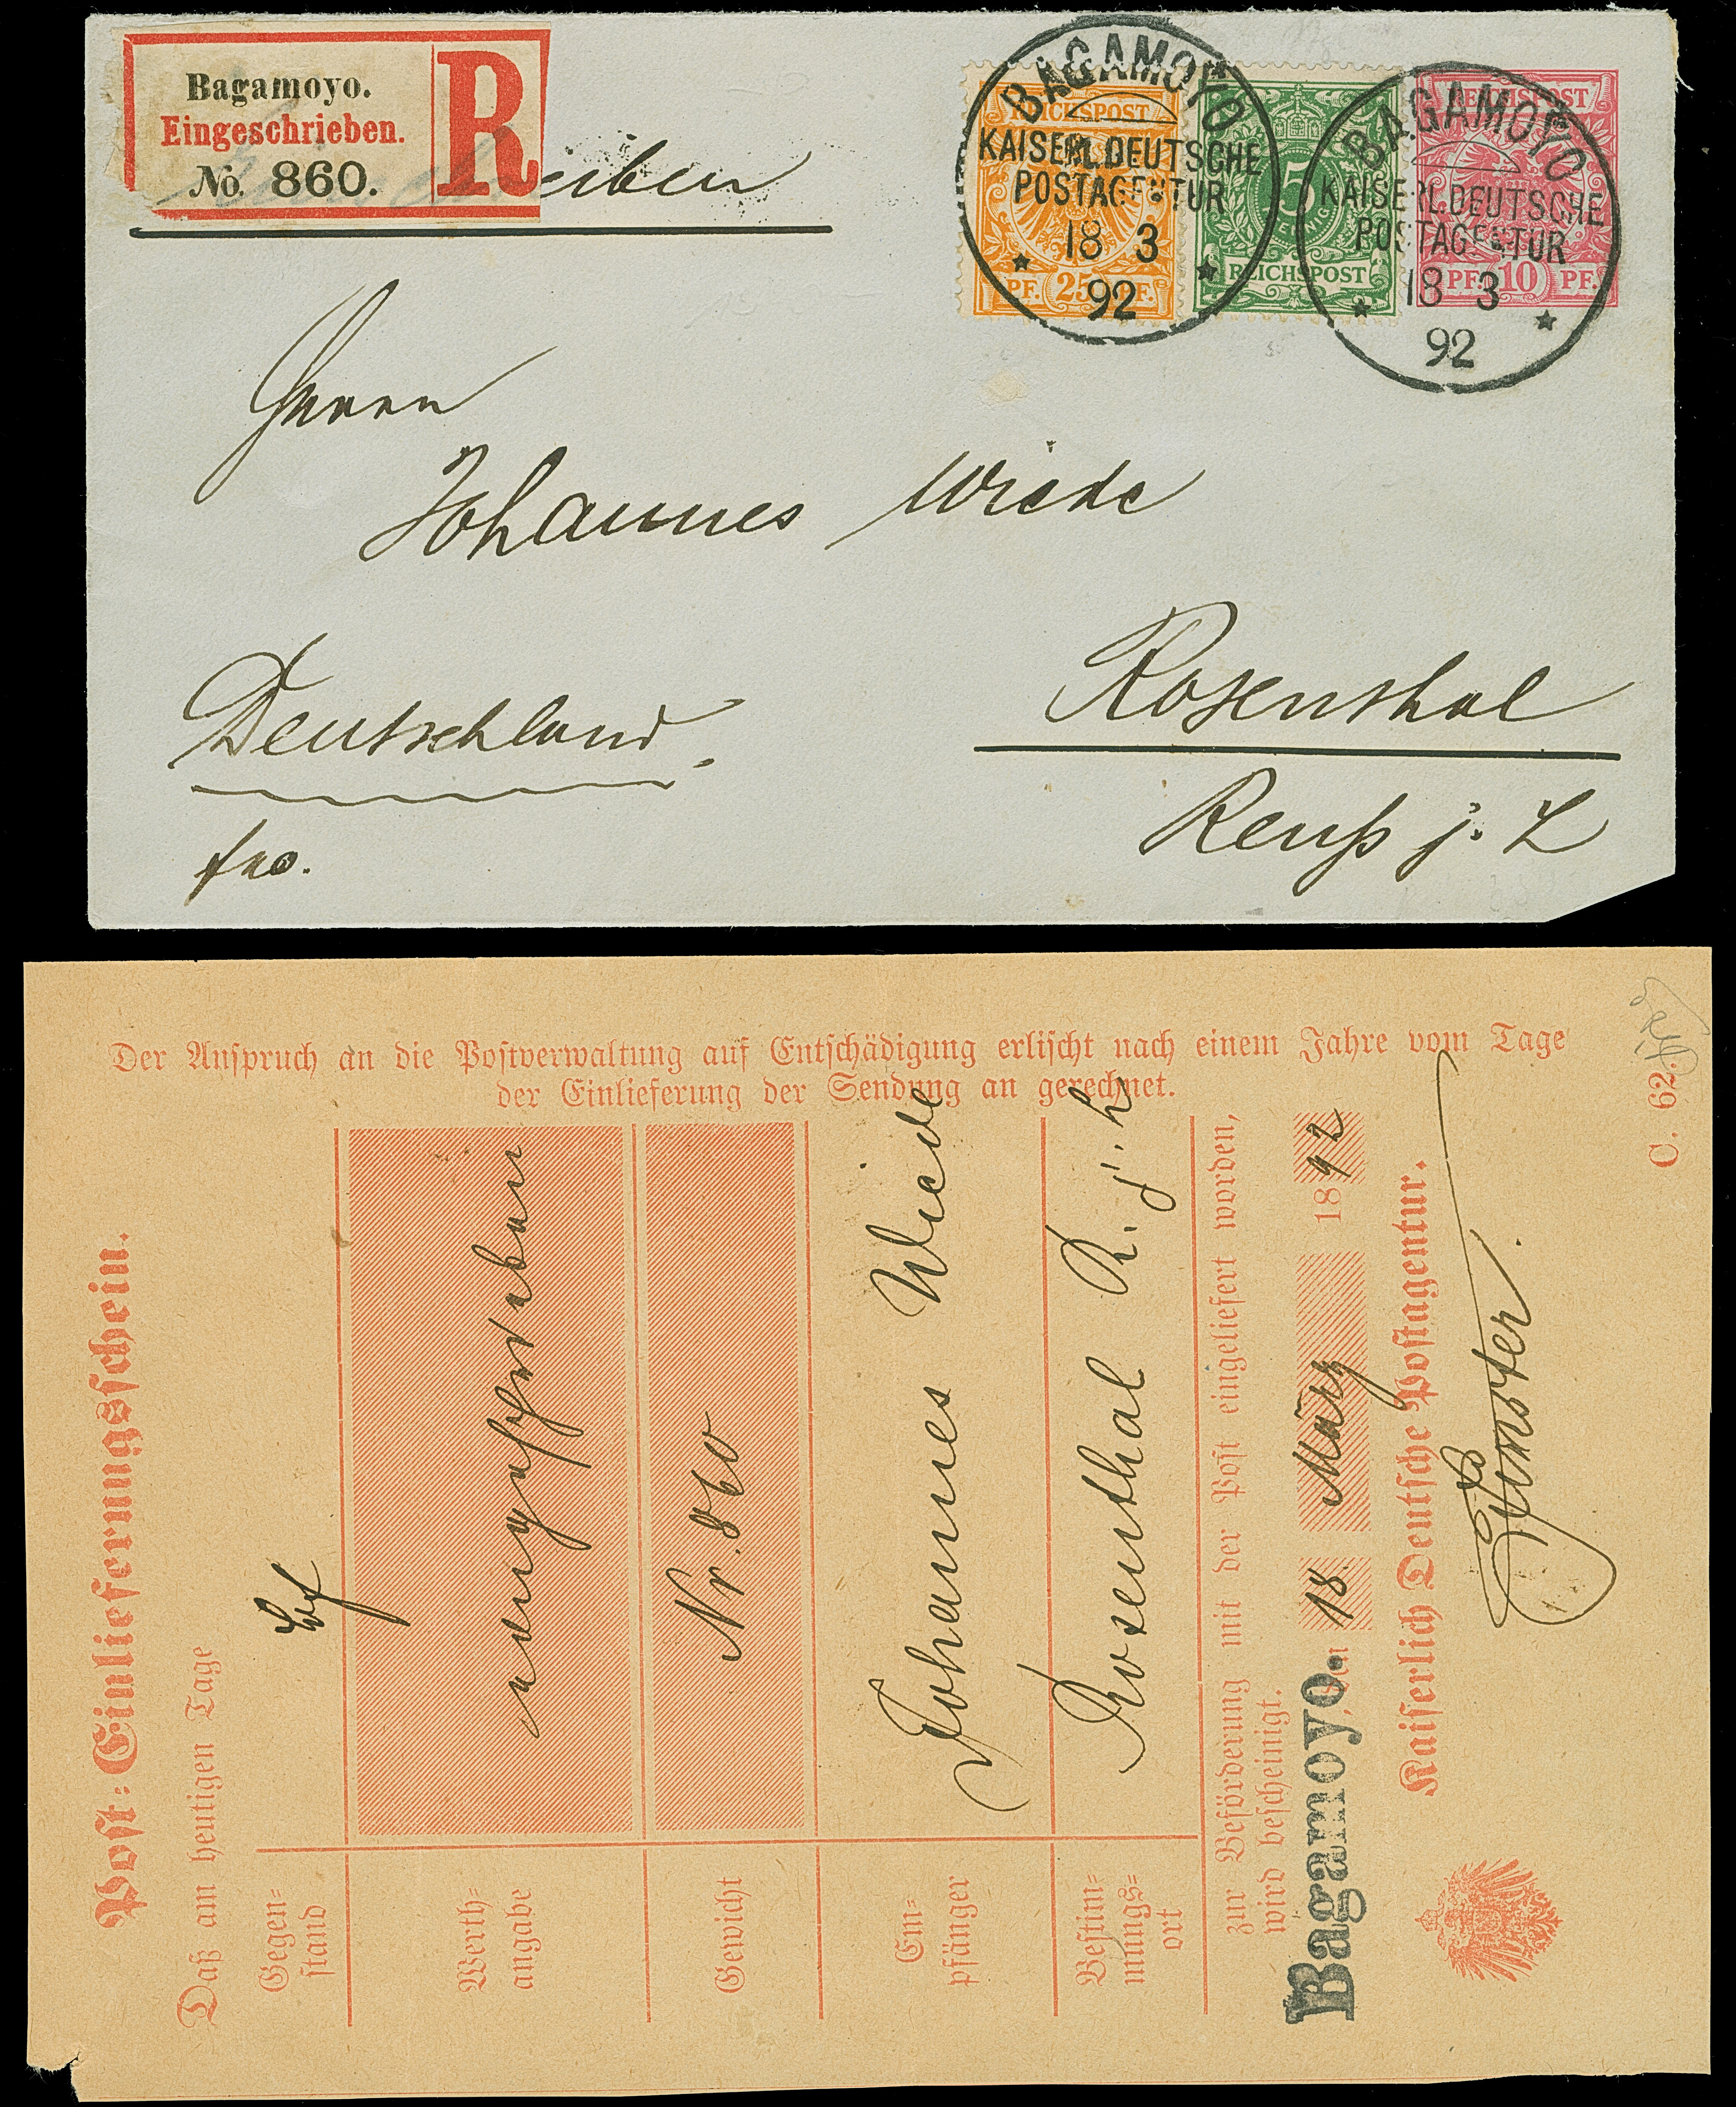 Bagamoyo.
Eingeschrieben.
No. 860.
R
eiben
REICHSPOST
PF. 25 PF.
5
REICHSPOST
REICHSPOST
PF. 10 PF.
BAGAMOYO
KAISERL. DEUTSCHE
POSTAGENTUR
18 3
92
BAGAMOYO
KAISERL. DEUTSCHE
POSTAGENTUR
18 3
92
Herrn
Johannes Wiede
Rosenthal
Reuß j. L
Deutschland
fro.
Der Anspruch an die Postverwaltung auf Entschädigung erlischt nach einem Jahre vom Tage
der Einlieferung der Sendung an gerechnet.
Post-Einlieferungsschein.
Daß am heutigen Tage
Gegen-
stand
Bf
Werth-
angabe
eingeschrieben
Gewicht
Nr. 860
Em-
pfänger
Johannes Wiede
Bestim-
mungs-
ort
Rosenthal R. j. L
zur Beförderung mit der Post eingeliefert worden,
wird bescheinigt.
Bagamoyo. den 18 März 1892
Kaiserlich Deutsche Postagentur.
C. 62.